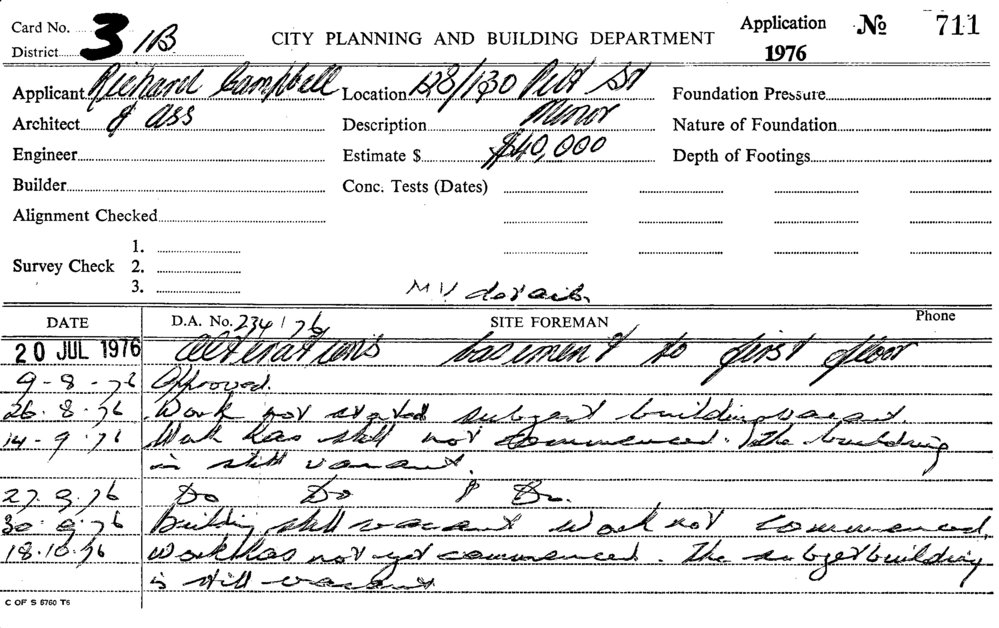 Card No. 3 /1B
District
CITY PLANNING AND BUILDING DEPARTMENT
Application No 711
1976
Applicant Richard Campbell
Location 128/130 Pitt St
Foundation Pressure
Architect & Ass
Description Minor
Nature of Foundation
Engineer
Estimate $ $40,000
Depth of Footings
Builder
Conc. Tests (Dates)
Alignment Checked
Survey Check
1.
2.
3.
details
DATE
D.A. No. 234/76
SITE FOREMAN
Phone
20 JUL 1976 Alterations basement to first floor
9-8-76 Approved.
26.8.76 Work not started subject building vacant
14-9-76 Work has still not commenced. The building
is still vacant.
27.9.76 Do Do Do.
30.9.76 Building still vacant work not commenced.
18.10.76 Work has not yet commenced. The subject building
is still vacant
C OF S 5760 T6